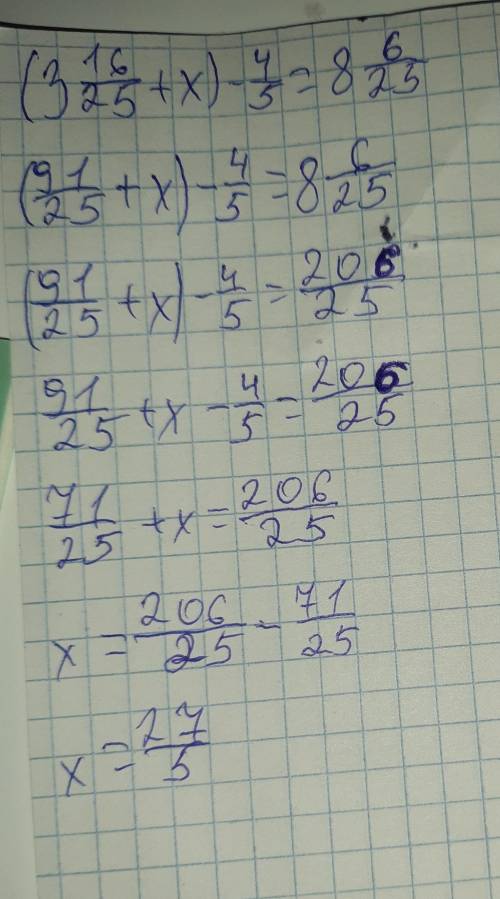 (3 16/25 + x) - 4/5 = 8 6/25
(91/25 + x) - 4/5 = 8 6/25
(91/25 + x) - 4/5 = 206/25
91/25 + x - 4/5 = 206/25
71/25 + x = 206/25
x = 206/25 - 71/25
x = 27/5